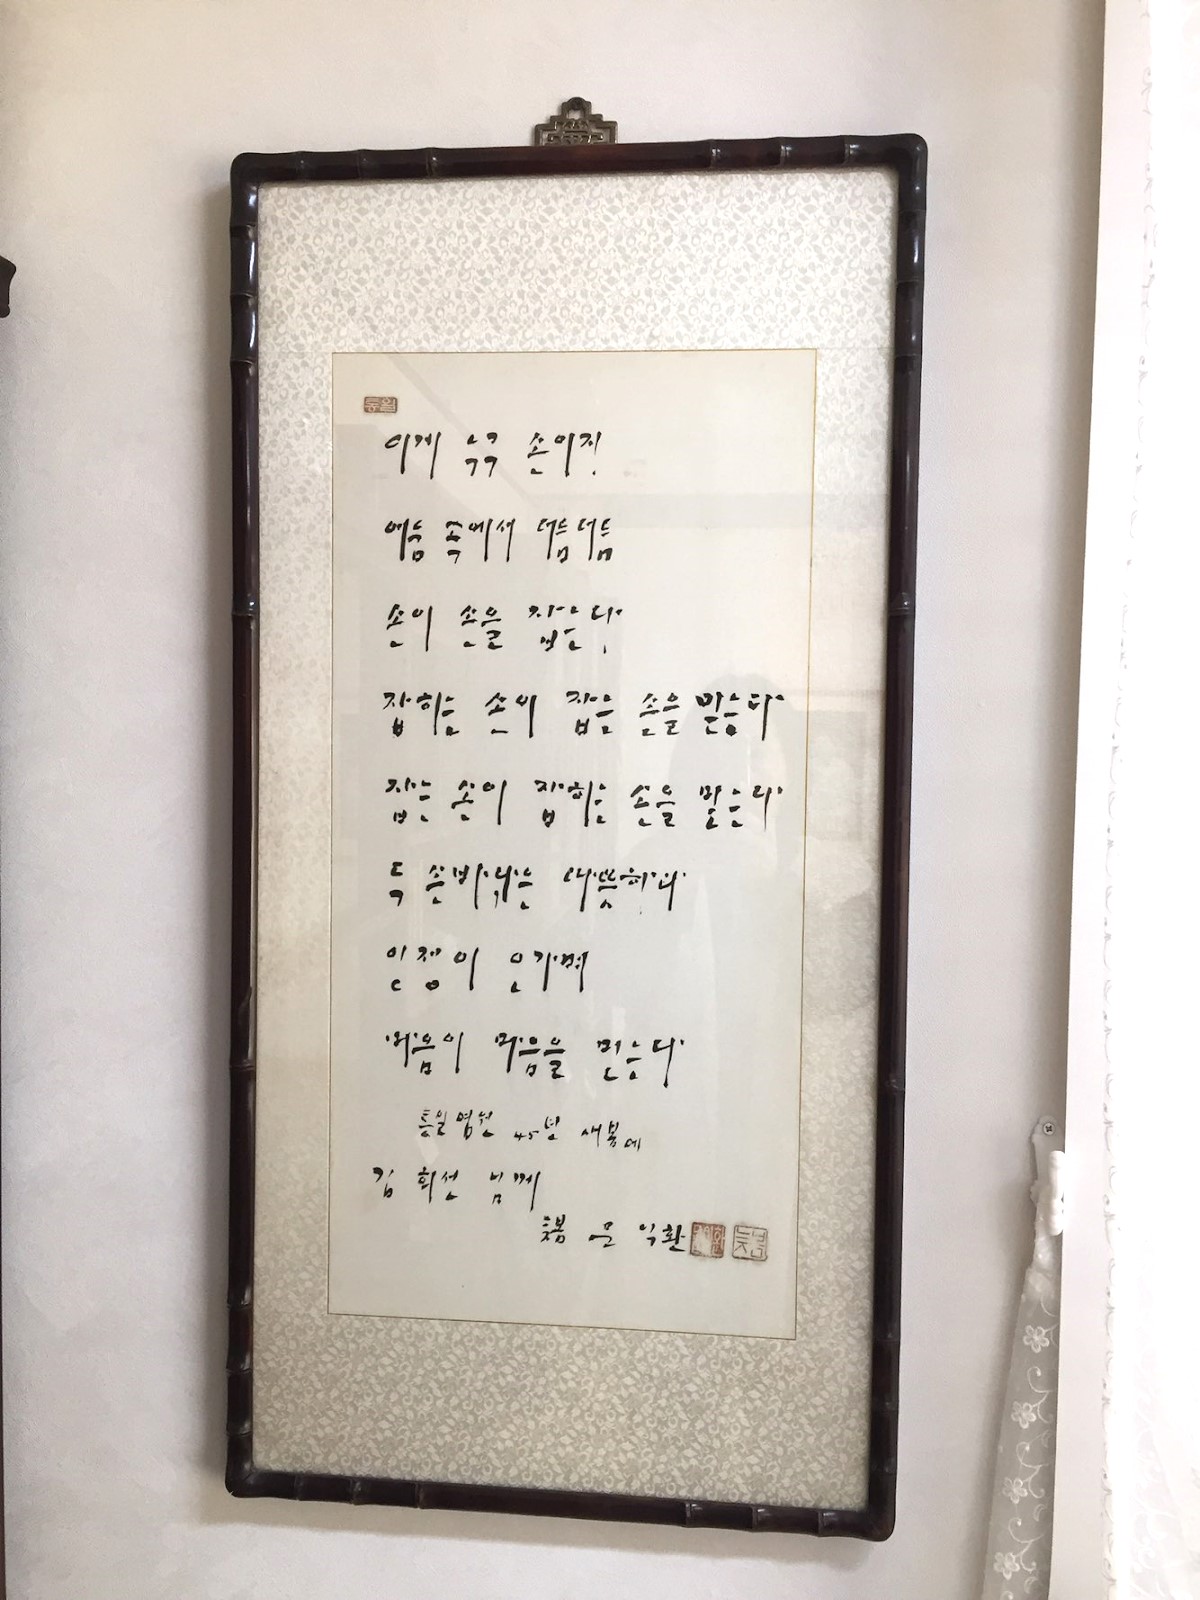 통일
이게 누구 손이지
어둠 속에서 더듬더듬
손이 손을 잡는다
잡히는 손이 잡는 손을 믿는다
잡는 손이 잡히는 손을 믿는다
두 손바닥은 따뜻하다
인정이 오가며
마음이 마음을 믿는다
통일염원 45년 새봄에
김 희선 님께
늦봄 문 익환 문익환 늦봄